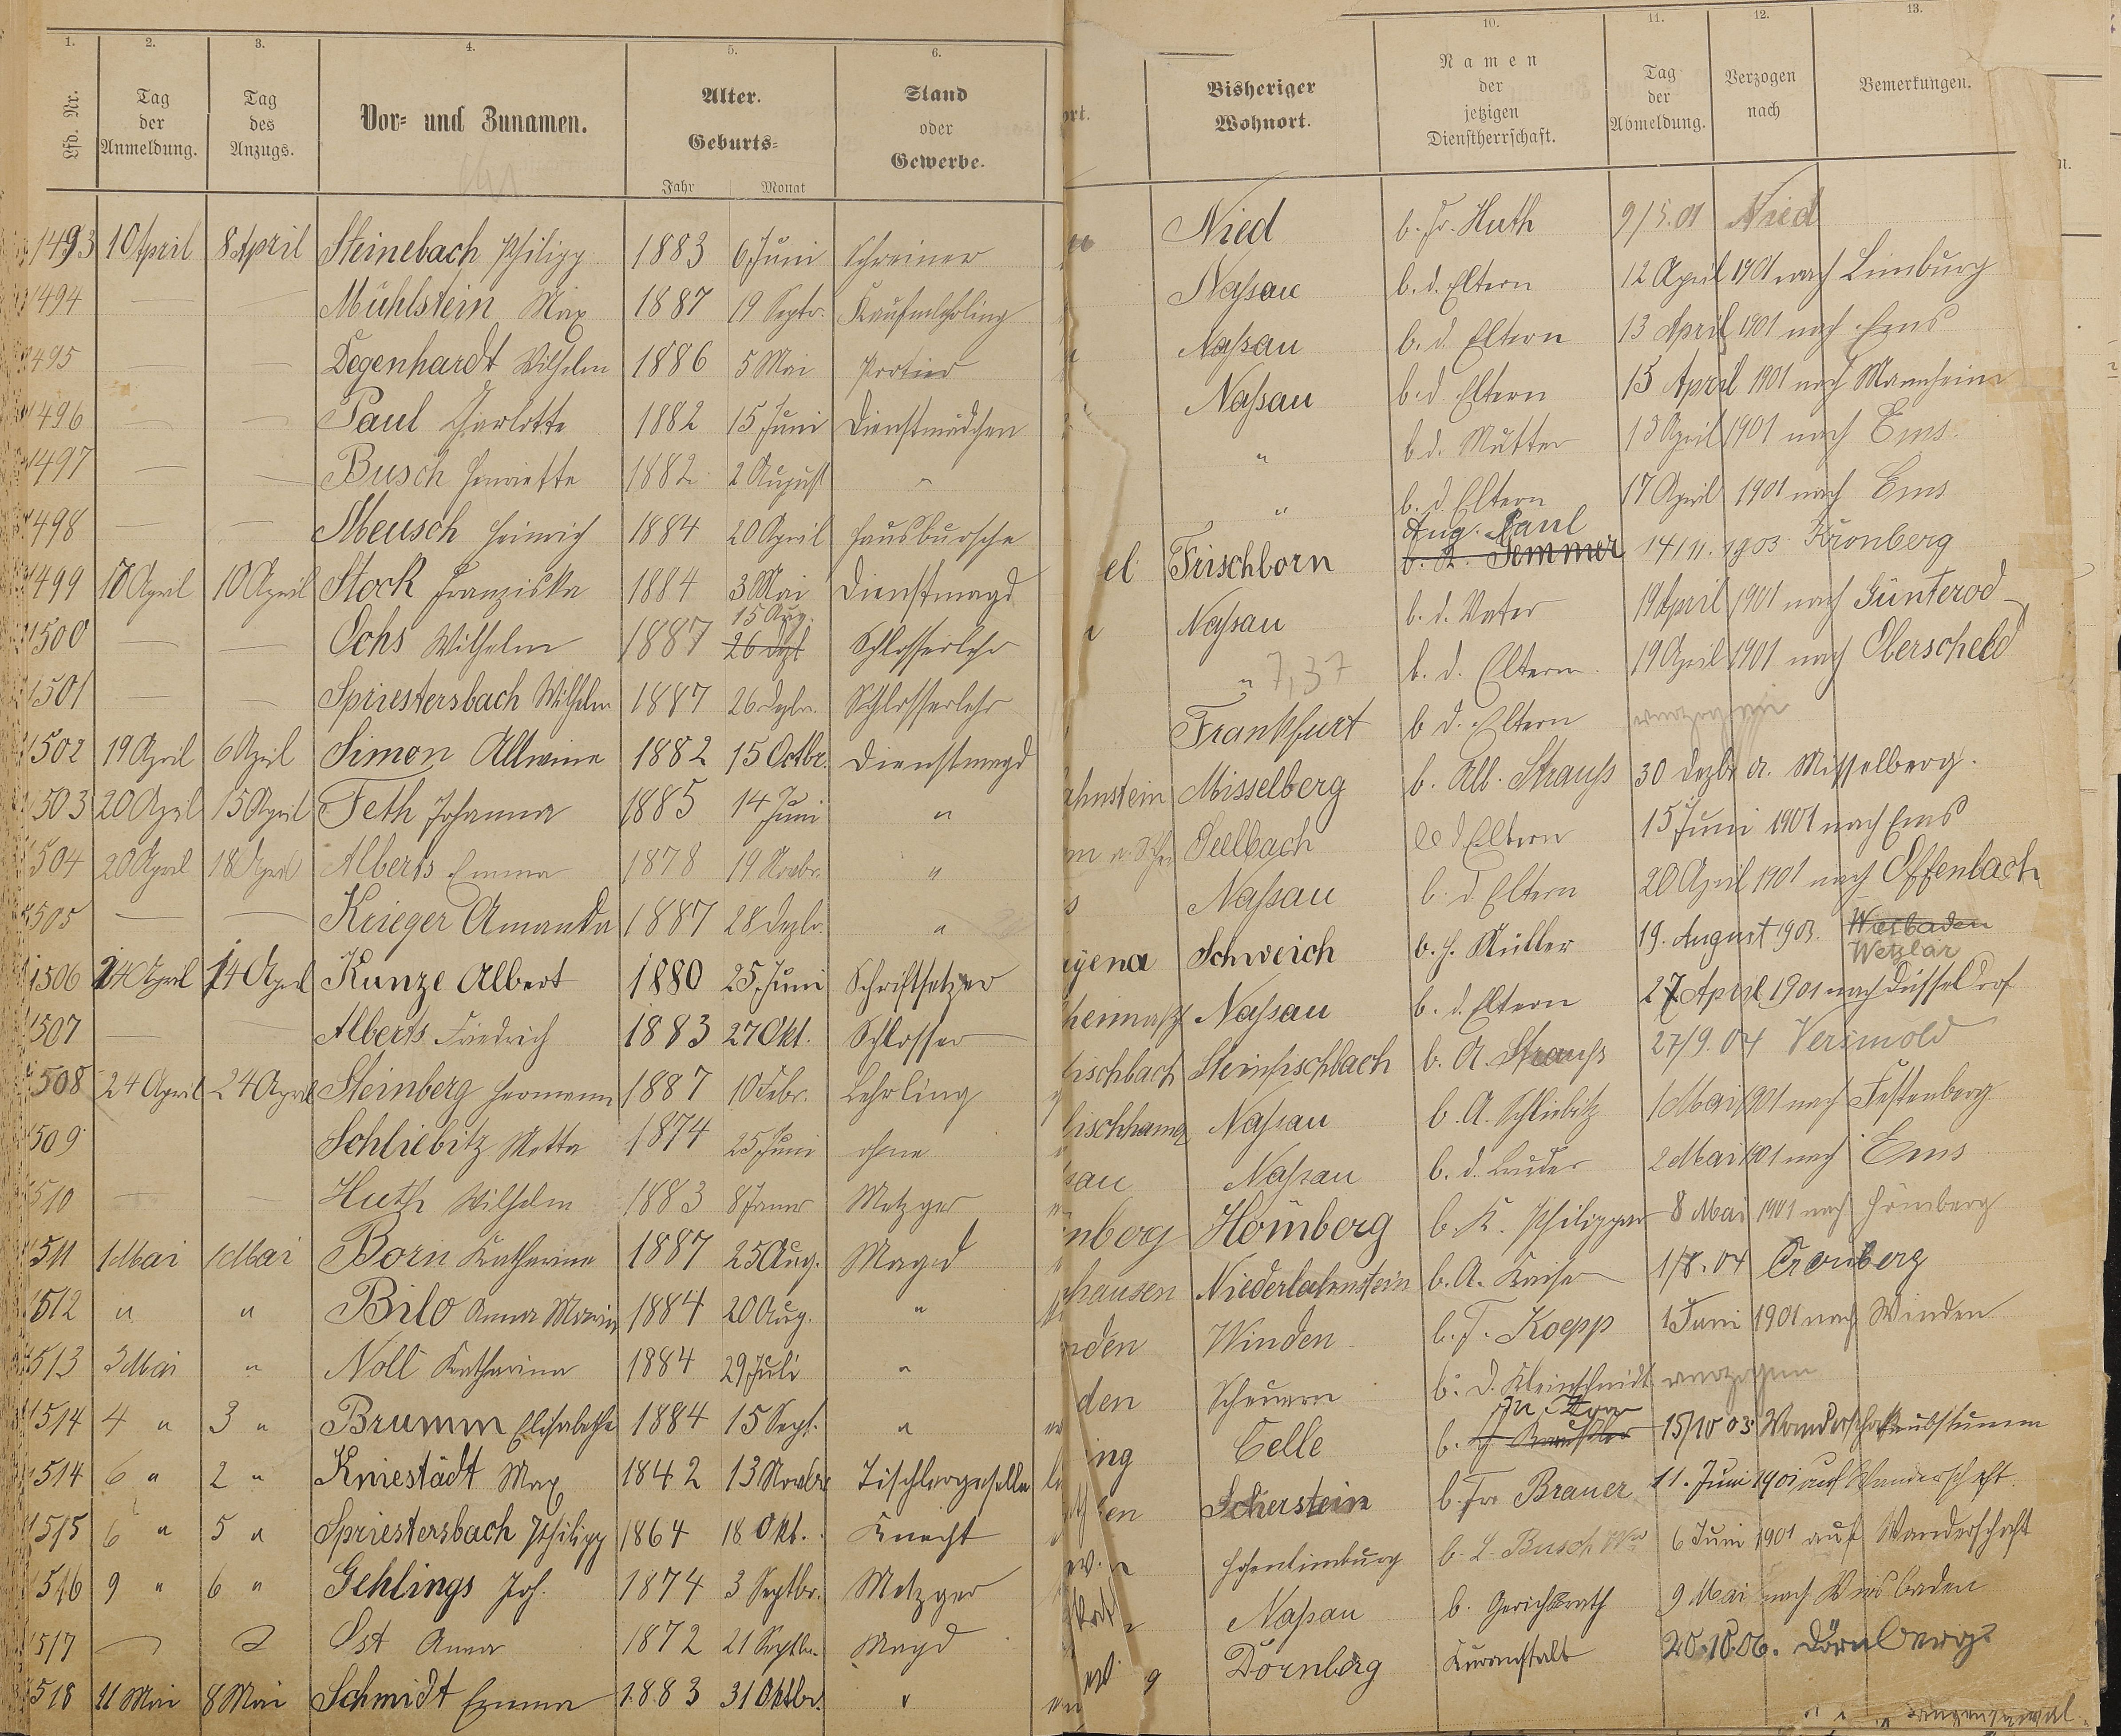 1. 2. 3. 4. 5. 6. 10. 11. 12. 13.
Lfd. Nr. Tag der Anmeldung. Tag des Anzugs. Vor- und Zunamen. Alter. Geburts- Jahr Monat Stand oder Gewerbe. Bisheriger Wohnort. Namen der jetzigen Dienstherrschaft. Tag der Abmeldung. Verzogen nach Bemerkungen.
1493 10 April 8 April Steinebach Philipp 1883 6. Juni Schreiner
1494 — — Mühlstein Max 1887 19 Septr. Kaufmlehrling
1495 — — Degenhardt Wilhelm 1886 5 Mai Portier
1496 — — Paul Charlotte 1882 15 Juni Dienstmädchen
1497 — — Busch Henriette 1882 2 August "
1498 — — Meusch Heinrich 1884 20 April Hausbursche
1499 18 April 10 April Stock Franziska 1884 3 Mai Dienstmagd
15 Aug.
1500 — — Ochs Wilhelm 1887 26 Dezb Schlosserlehr
1501 — — Spriestersbach Wilhelm 1887 26 Dezbr. Schlosserlehr
1502 19 April 6 April Simon Allwine 1882 15 Octbr. Dienstmagd
1503 20 April 15 April Feth Johanna 1885 14 Juni "
1504 20 April 18 April Alberts Emma 1878 19 Novbr. "
1505 — — Krieger Amanda 1887 28 Dezbr. "
1506 24 April 14 April Kunze Albert 1880 25. Juni Schriftsetzer
1507 — Alberts Friedrich 1883 27 Okt. Schlosser
1508 24 April 24 April Steinberg Hermann 1887 10 Febr. Lehrling
1509 Schliebitz Metta 1874 25 Juni ohne
1510 — — Huth Wilhelm 1883 8 Januar Metzger
1511 1 Mai 1 Mai Born Katharine 1887 25 Aug. Magd
1512 " " Bilo Anna Maria 1884 20 Aug. "
1513 3 Mai " Noll Katharina 1884 29 Juli "
1514 4 " 3 " Brumm Elisabethe 1884 15 Sept. "
1514 6 " 2 " Kniestädt Max 1842 13 Novbr Tischlergeselle
1515 6 " 5 " Spriestersbach Philipp 1864 18 Okt. Knecht
1516 9 " 6 " Gehlings Joh. 1874 3 Septbr. Metzger
1517 Ost Anna 1872 21 Septbr. Magd
1518 11 Mai 8 Mai Schmidt Emma 1883 31 Oktbr. "
Nied b. Fr. Huth 9/5. 01 Nied
Nassau b. d. Eltern 12 April 1901 nach Limburg
Nassau b. d. Eltern 13 April 1901 nach Ems
Nassau b. d. Eltern 15 April 1901 nach Mannheim
" b. d. Mutter 13 April 1901 nach Ems.
" b. d. Eltern 17 April 1901 nach Ems
Aug. Paul
el Frischborn Semmer 14/11. 1903 Kronberg
Nassau b. d. Vater 19 April 1901 nach Günterod
" 7,37 b. d. Eltern 19 April 1901 nach Oberscheld
Frankfurt b d. Eltern verzogen
ahnstein Misselberg b. Alb. Strauss 30 Dezbr Misselberg.
Seelbach d Eltern 15 Juni 1901 nach Ems
Nassau b. d Eltern 20 April 1901 nach Offenbach
Schweich b. H. Müller 19. August 1903. Wiesbaden
Wetzlar
Nassau b. d. Eltern 27 April 1901 nach Düsseldorf
fischbach Steinfischbach b. A. Strauss 27/9. 04 Versmold
Nassau b. A. Schliebitz 1 Mai 1901 nach Festenberg
sau Nassau b. d. Bruder 2 Mai 1901 nach Ems
nberg Hömberg b. K. Philippar 8 Mai 1901 nach Hömberg
hausen Niederlahnstein b. A. Kaiser 1/8. 04 Cronberg
nden Winden b. F. Koepp 1 Juni 1901 nach Winden
den Scheuern b. D. Kleinschmidt verzogen
ing Celle b. 15/10 03 Wanderschaft taubstumm
Scherstein b. Fr. Brauer 11. Juni 1901 auf Wanderschaft
Hohenlimburg b. L. Busch Ww 6 Juni 1901 auf Wanderschaft
Nassau b. Gerichtsrath 9 Mai nach Wiesbaden
Dörnberg Kuranstalt 20.10.06. Dörnberg